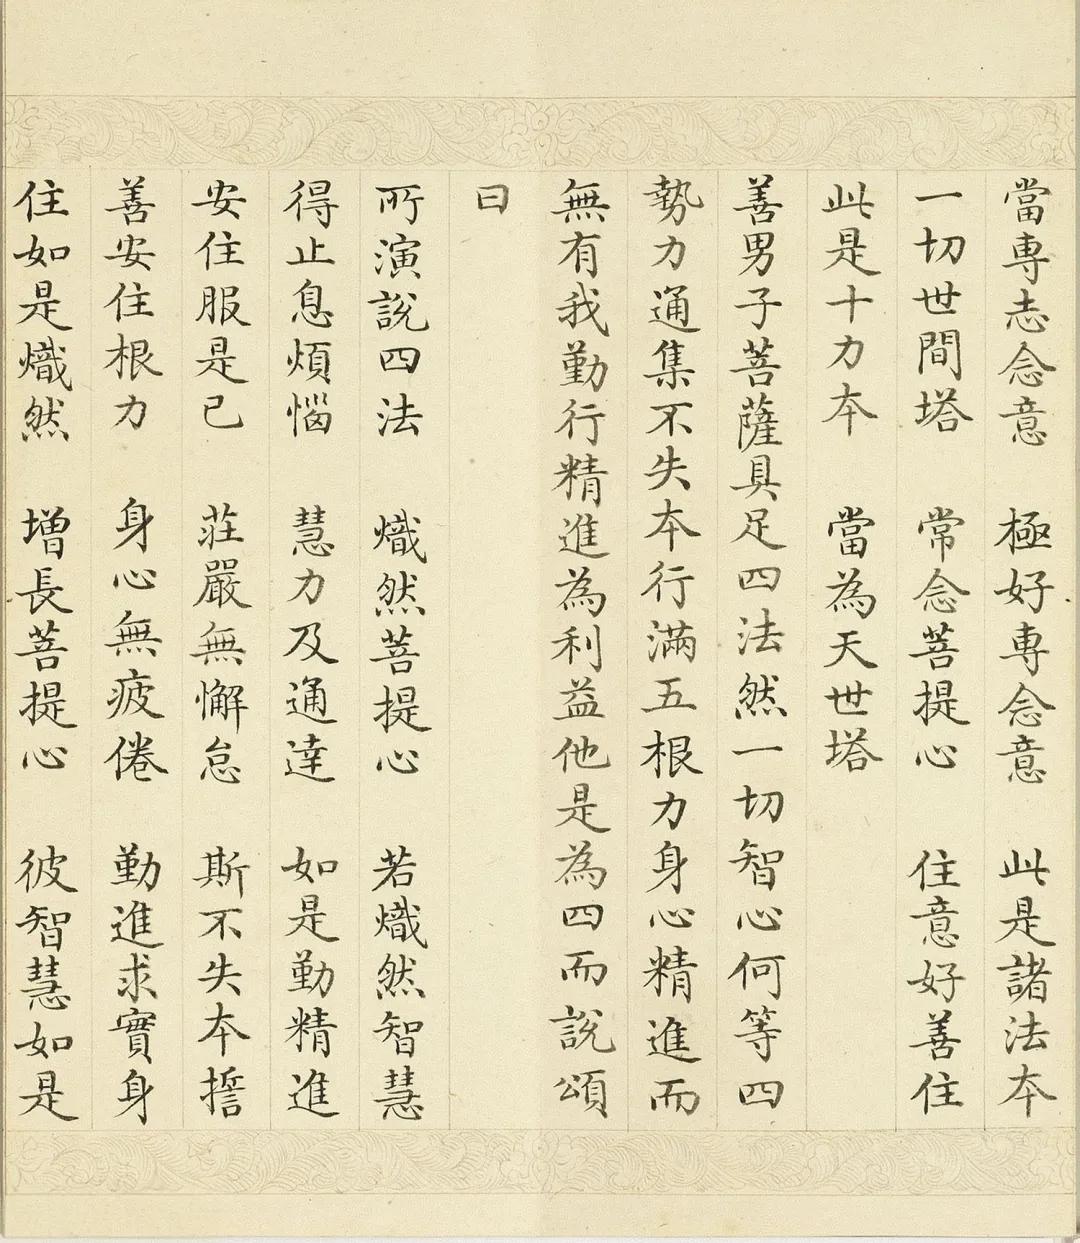 當專志念意 極好專念意 此是諸法本
一切世間塔 常念菩提心 住意好善住
此是十力本 當為天世塔
善男子菩薩具足四法然一切智心何等四
勢力通集不失本行滿五根力身心精進而
無有我勤行精進為利益他是為四而說頌
曰
所演說四法 熾然菩提心 若熾然智慧
得止息煩惱 慧力及通達 如是勤精進
安住服是已 莊嚴無懈怠 斯不失本誓
善安住根力 身心無疲倦 勤進求實身
住如是熾然 增長菩提心 彼智慧如是